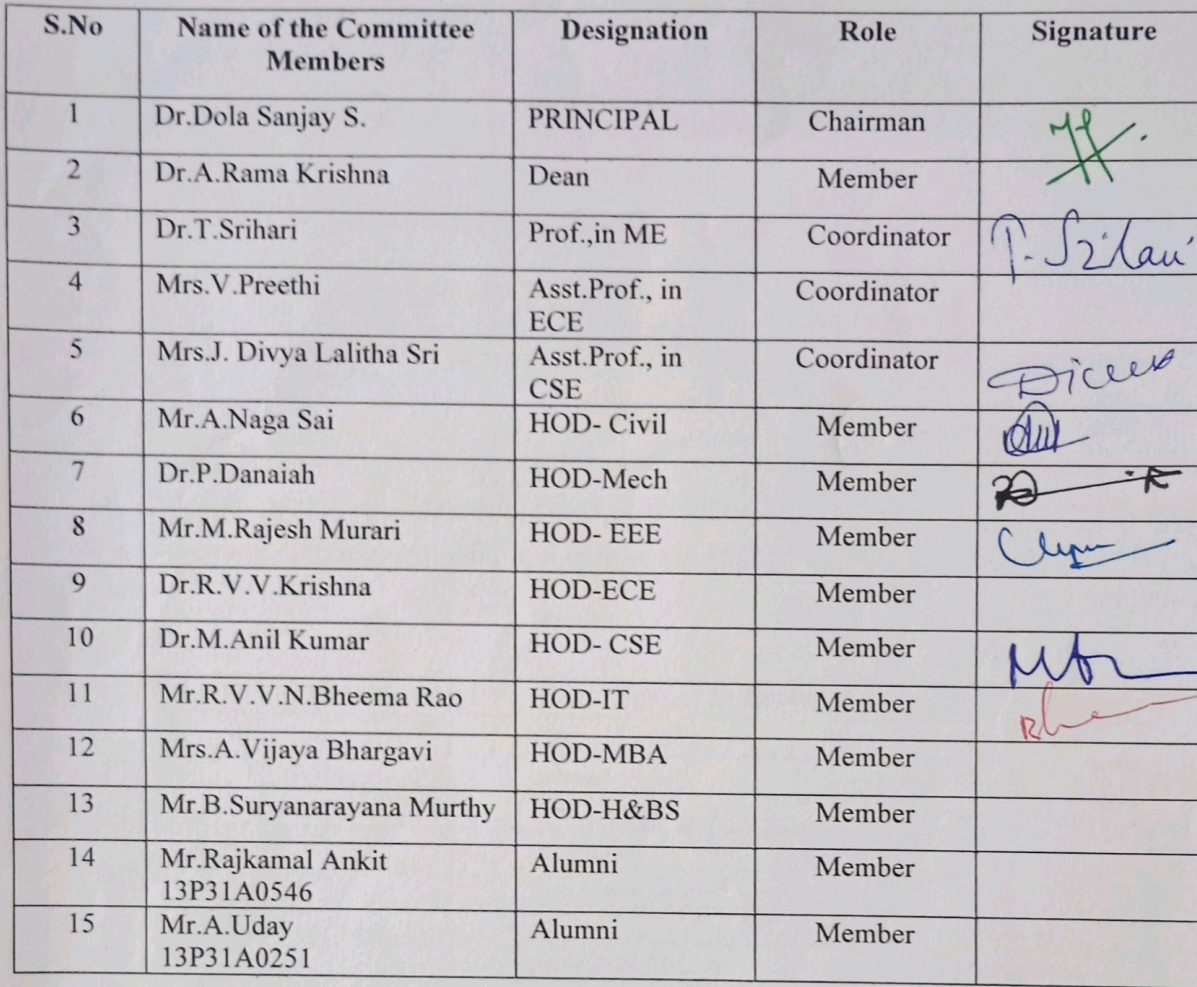 S.No Name of the Committee Members Designation Role Signature
1 Dr.Dola Sanjay S. PRINCIPAL Chairman
2 Dr.A.Rama Krishna Dean Member
3 Dr.T.Srihari Prof.,in ME Coordinator
4 Mrs.V.Preethi Asst.Prof., in ECE Coordinator
5 Mrs.J. Divya Lalitha Sri Asst.Prof., in CSE Coordinator
6 Mr.A.Naga Sai HOD- Civil Member
7 Dr.P.Danaiah HOD-Mech Member
8 Mr.M.Rajesh Murari HOD- EEE Member
9 Dr.R.V.V.Krishna HOD-ECE Member
10 Dr.M.Anil Kumar HOD- CSE Member
11 Mr.R.V.V.N.Bheema Rao HOD-IT Member
12 Mrs.A.Vijaya Bhargavi HOD-MBA Member
13 Mr.B.Suryanarayana Murthy HOD-H&BS Member
14 Mr.Rajkamal Ankit Alumni Member
13P31A0546
15 Mr.A.Uday Alumni Member
13P31A0251